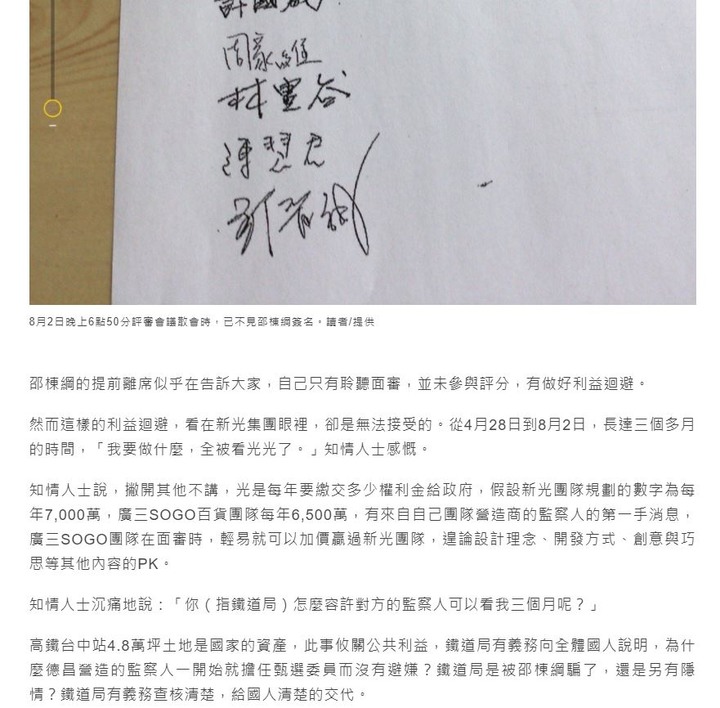 周家維
林豊谷
陳慧君
8月2日晚上6點50分評審會議散會時，已不見邵棟綱簽名。讀者/提供
邵棟綱的提前離席似乎在告訴大家，自己只有聆聽面審，並未參與評分，有做好利益迴避。
然而這樣的利益迴避，看在新光集團眼裡，卻是無法接受的。從4月28日到8月2日，長達三個多月
的時間，「我要做什麼，全被看光光了。」知情人士感慨。
知情人士說，撇開其他不講，光是每年要繳交多少權利金給政府，假設新光團隊規劃的數字為每
年7,000萬，廣三SOGO百貨團隊每年6,500萬，有來自自己團隊營造商的監察人的第一手消息，
廣三SOGO團隊在面審時，輕易就可以加價贏過新光團隊，遑論設計理念、開發方式、創意與巧
思等其他內容的PK。
知情人士沉痛地說：「你（指鐵道局）怎麼容許對方的監察人可以看我三個月呢？」
高鐵台中站4.8萬坪土地是國家的資產，此事攸關公共利益，鐵道局有義務向全體國人說明，為什
麼德昌營造的監察人一開始就擔任甄選委員而沒有避嫌？鐵道局是被邵棟綱騙了，還是另有隱
情？鐵道局有義務查核清楚，給國人清楚的交代。